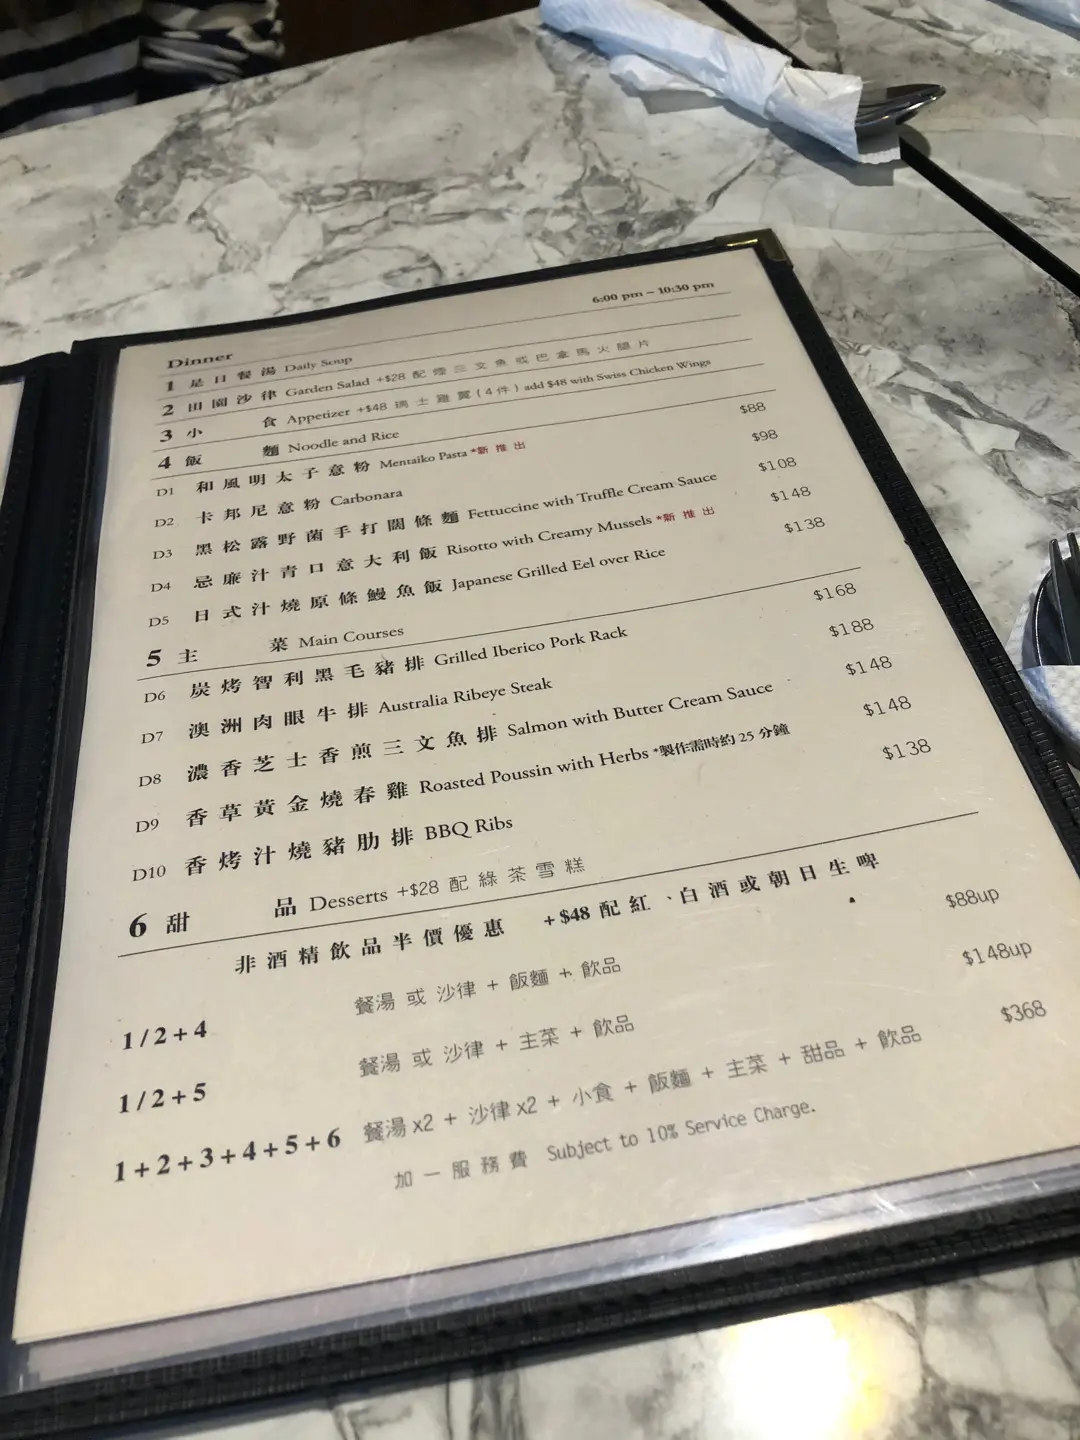 Dinner 6:00 pm – 10:30 pm
1 是日餐湯 Daily Soup
2 田園沙律 Garden Salad +$28 配煙三文魚或巴拿馬火腿片
3 小食 Appetizer +$48 瑞士雞翼(4件) add $48 with Swiss Chicken Wings
4 飯麵 Noodle and Rice
D1 和風明太子意粉 Mentaiko Pasta *新推出 $88
D2 卡邦尼意粉 Carbonara $98
D3 黑松露野菌手打闊條麵 Fettuccine with Truffle Cream Sauce $108
D4 忌廉汁青口意大利飯 Risotto with Creamy Mussels *新推出 $148
D5 日式汁燒原條鰻魚飯 Japanese Grilled Eel over Rice $138
5 主菜 Main Courses
D6 炭烤智利黑毛豬排 Grilled Iberico Pork Rack $168
D7 澳洲肉眼牛排 Australia Ribeye Steak $188
D8 濃香芝士香煎三文魚排 Salmon with Butter Cream Sauce $148
D9 香草黃金燒春雞 Roasted Poussin with Herbs *製作需時約 25 分鐘 $148
D10 香烤汁燒豬肋排 BBQ Ribs $138
6 甜品 Desserts +$28 配綠茶雪糕
非酒精飲品半價優惠 +$48 配紅、白酒或朝日生啤
1/2+4 餐湯 或 沙律 + 飯麵 + 飲品 $88up
1/2+5 餐湯 或 沙律 + 主菜 + 飲品 $148up
1+2+3+4+5+6 餐湯 x2 + 沙律 x2 + 小食 + 飯麵 + 主菜 + 甜品 + 飲品 $368
加一服務費 Subject to 10% Service Charge.